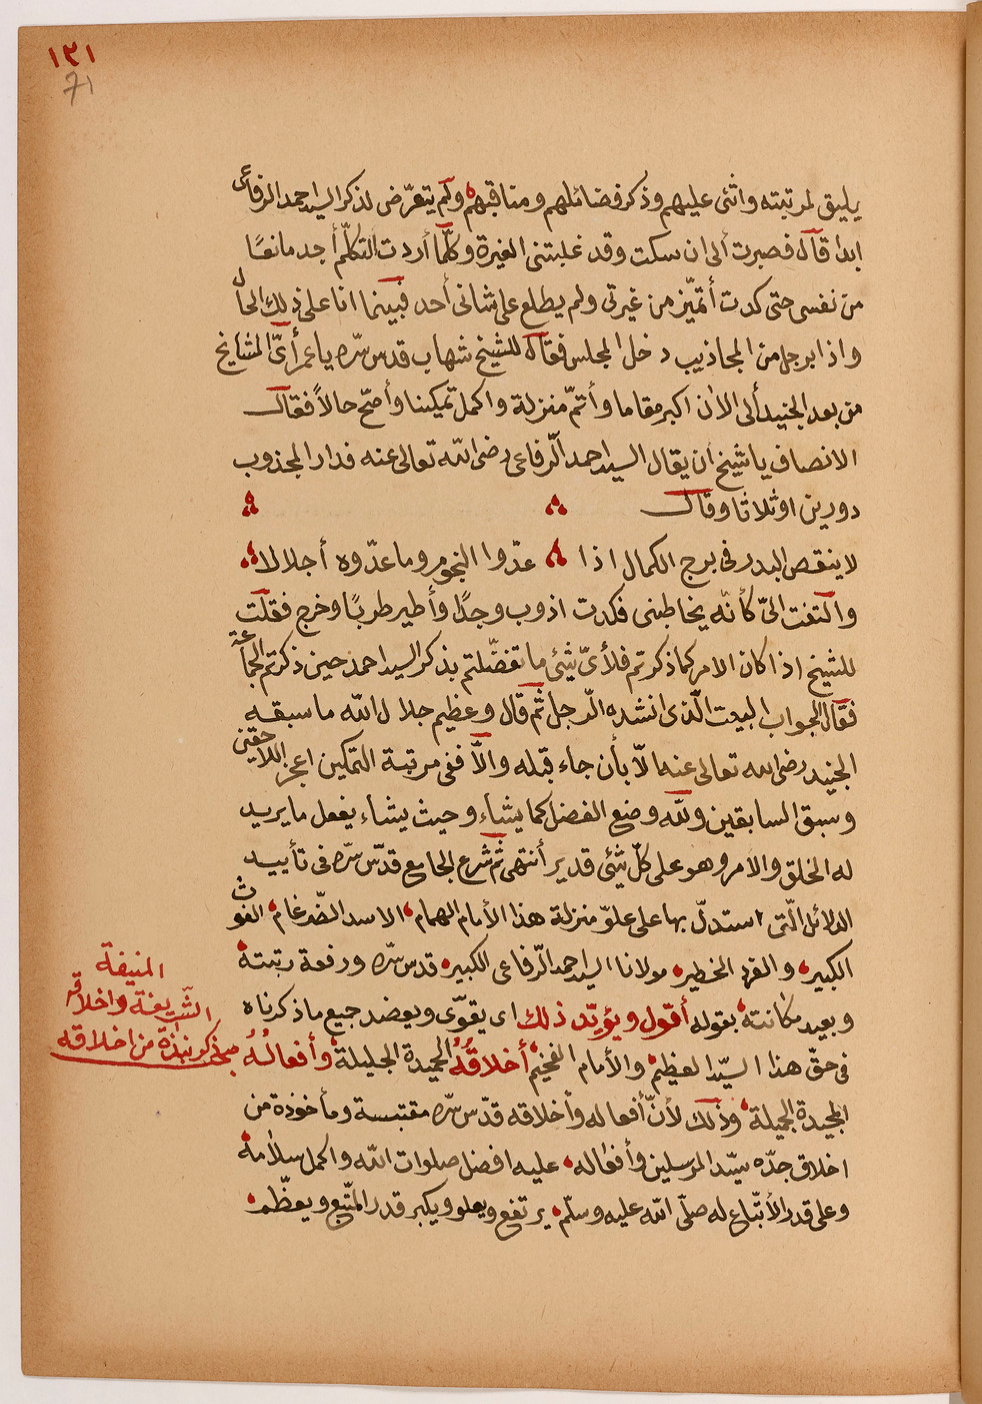 ١٣١
71
يليق لمرتبته واثنى عليهم وذكر فضائلهم ومناقبهم ولم يتعرّض لذكر السيد احمد الرفاعى
ابدا قال فصبرت ألى ان سكت وقد غلبتنى الغيرة وكلّما أردت التكلّم أجد مانعًا
من نفسى حتى كدت أتميّز من غيرتى ولم يطلع على شانى أحد فبينما انا على ذلك الحال
واذا برجل من المجاذيب دخل المجلس فقال للشيخ شهاب قدس سره يا عمر أىّ المشايخ
من بعد الجنيد ألى الان اكبر مقاما وأتمّ منزلة واكمل تمكينا وأصحّ حالاً فقال
الانصاف يا شيخ ان يقال السيد احمد الرّفاعى رضى الله تعالى عنه فدار المجذوب
دورين اوثلاثا وقال
لا ينقص البدر فى برج الكمال اذا عدّوا النجوم وما عدّوه أجلالا
والتفت الىّ كأنّه يخاطبنى فكدت اذوب وجدًا وأطير طربًا وخرج فقلت
للشيخ اذا كان الامر كما ذكرتم فلأىّ شئ ما تفضّلتم بذكر السيد احمد حين ذكرتم الجماعة
فقال الجواب البيت الّذى انشده الرّجل ثمّ قال وعظيم جلال الله ما سبقه
الجنيد رضى الله تعالى عنه الاّ بأن جاء قبله والاّ ففى مرتبة التمكين اعجز اللاحقين
وسبق السابقين ولله وضع الفضل كما يشاء وحيث يشاء يفعل ما يريد
له الخلق والامر وهو على كلّ شئ قدير أنتهى ثم شرع الجامع قدّس سرّه فى تأييد
الدلائل الّتى استدلّ بها على علوّ منزلة هذا الأمام الهمام الاسد الضّرغام الغوث
الكبير والفرد الخطير مولانا السيد احمد الرّفاعى الكبير قدس سرّه ورفعة رتبته
وبعيد مكانته بقوله أقول ويؤيّد ذلك اى يقوّى ويعضد جميع ما ذكرناه
فى حقّ هذا السيّد العظيم والأمام الفخيم أخلاقُهُ الحميدة الجليلة وأفعالُهُ
المجيدة الجميلة وذلك لأنّ أفعاله وأخلاقه قدّس سرّه مقتبسة ومأخوذة من
اخلاق جدّه سيّد المرسلين وأفعاله عليه افضل صلوات الله واكمل سلامه
وعلى قدر الأتّباع له صلّى الله عليه وسلّم يرتفع ويعلو ويكبر قدر المتّبع ويعظّم
المنيفة
الشّريفة واخلاقه
ذكر نبذة من اخلاقه